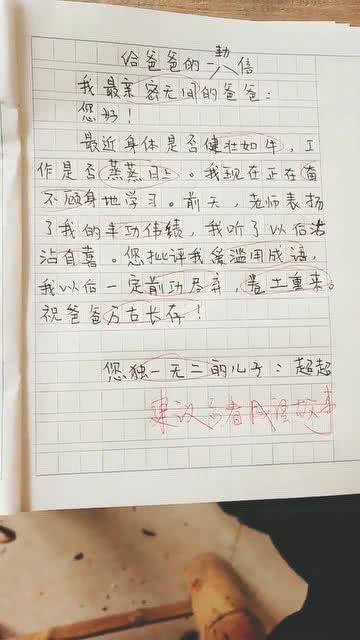 给爸爸的一八信
我最亲密无间的爸爸:
您好!
最近身体是否健壮如牛,工
作是否蒸蒸日上。我现在正在奋
不顾身地学习。前天,老师表扬
了我的丰功伟绩,我听了以后沾
沾自喜。您批评我爱滥用成语,
我以后一定前功尽弃,卷土重来。
祝爸爸万古长存!
您独一无二的儿子:超超
建议多看成语故事